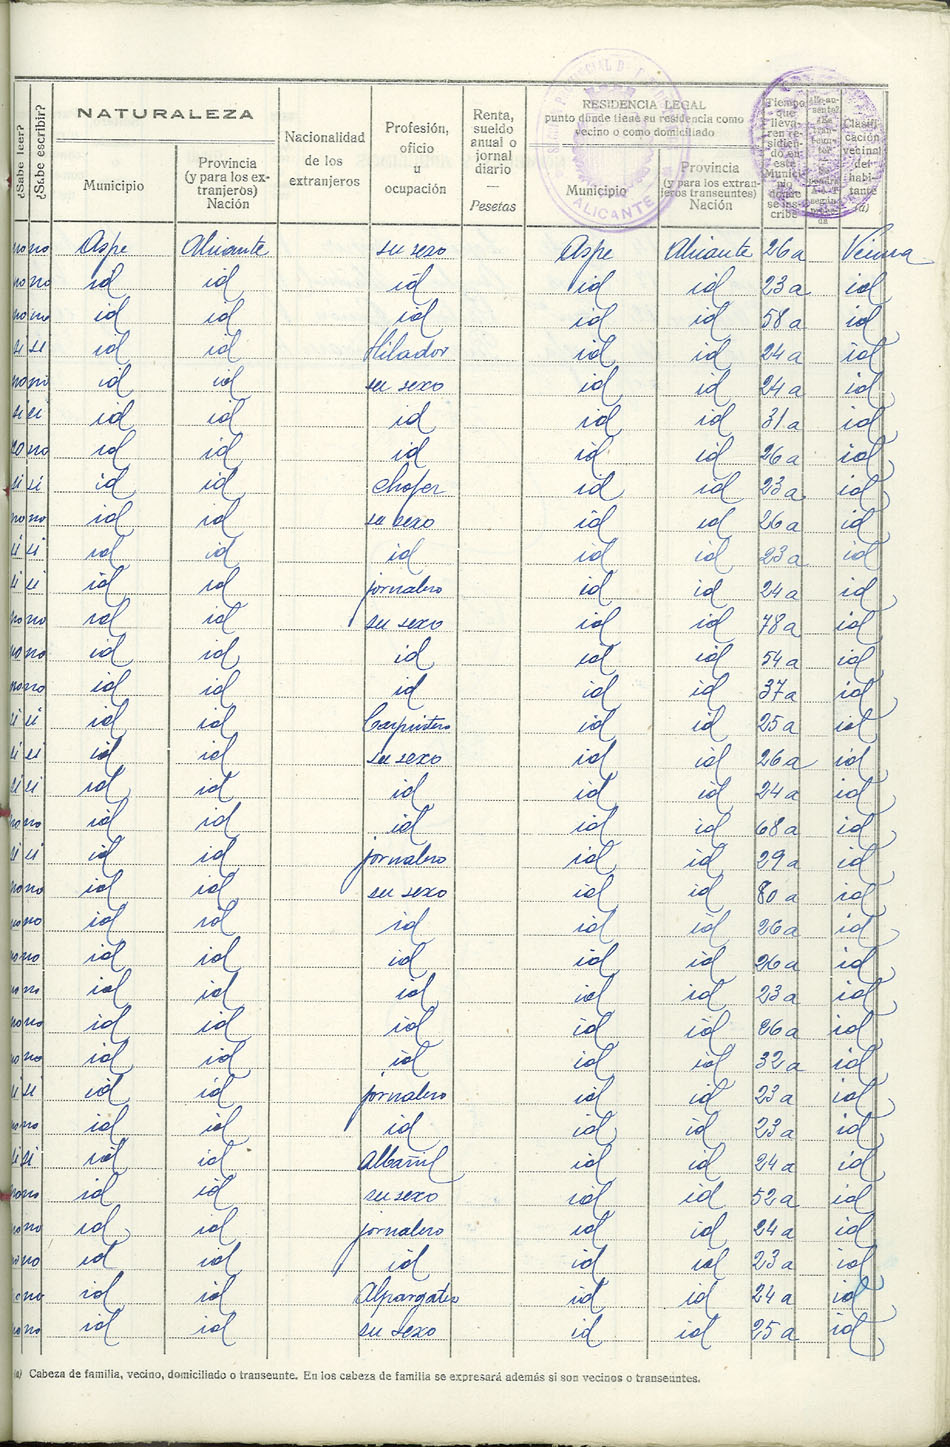 ¿Sabe leer? ¿Sabe escribir? NATURALEZA Nacionalidad de los extranjeros Profesión, oficio u ocupación Renta, sueldo anual o jornal diario — Pesetas RESIDENCIA LEGAL punto donde tiene su residencia como vecino o como domiciliado Tiempo que lleva- ren re- sidien- do en este Munici- pio donde se ins- cribe Clasifi- cación vecinal del habi- tante (a)
Municipio Provincia (y para los ex- tranjeros) Nación Municipio Provincia (y para los extran- jeros transeuntes) Nación
ALICANTE
no no Aspe Alicante su sexo Aspe Alicante 26 a Vecina
no no id id id id id 23 a id
no no id id id id id 58 a id
si si id id Hilador id id 24 a id
no no id id su sexo id id 24 a id
si si id id id id id 31 a id
no no id id id id id 26 a id
si si id id Chofer id id 23 a id
no no id id su sexo id id 26 a id
si si id id id id id 23 a id
si si id id jornalero id id 24 a id
no no id id su sexo id id 78 a id
no no id id id id id 54 a id
no no id id id id id 37 a id
si si id id Carpintero id id 25 a id
si si id id su sexo id id 26 a id
si si id id id id id 24 a id
no no id id id id id 68 a id
si si id id jornalero id id 29 a id
no no id id su sexo id id 80 a id
no no id id id id id 26 a id
no no id id id id id 26 a id
no no id id id id id 23 a id
no no id id id id id 26 a id
no no id id id id id 32 a id
si si id id jornalero id id 23 a id
no no id id id id id 23 a id
si si id id Albañil id id 24 a id
no no id id su sexo id id 52 a id
no no id id jornalero id id 24 a id
no no id id id id id 23 a id
no id id Alpargatero id id 24 a id
no no id id su sexo id id 25 a id
(a) Cabeza de familia, vecino, domiciliado o transeunte. En los cabeza de familia se expresará además si son vecinos o transeuntes.